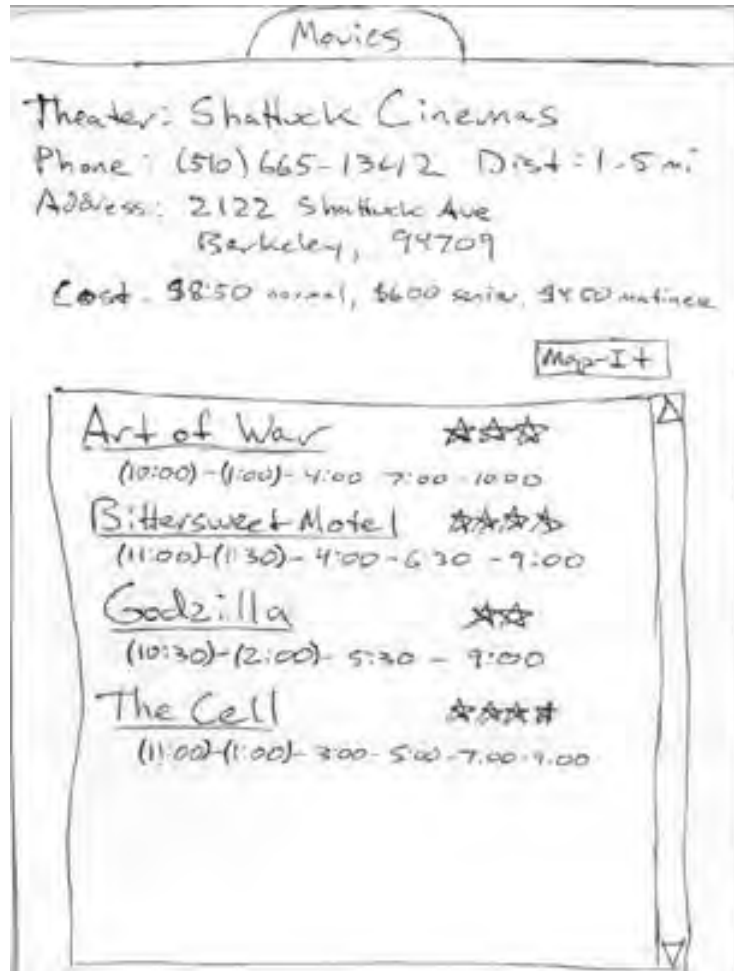 Movies
Theater: Shattuck Cinemas
Phone: (510) 665-1342 Dist: 1.5 mi
Address: 2122 Shattuck Ave
Berkeley, 94709
Cost. $8.50 normal, $6.00 senior, $4.50 matinee
Map-It
Art of War
(10:00)-(1:00)-4:00 7:00-10:00
Bittersweet Motel
(11:00)-(1:30)-4:00-6:30-9:00
Godzilla
(10:30)-(2:00)-5:30-9:00
The Cell
(11:00)-(1:00)-3:00-5:00-7:00-9:00